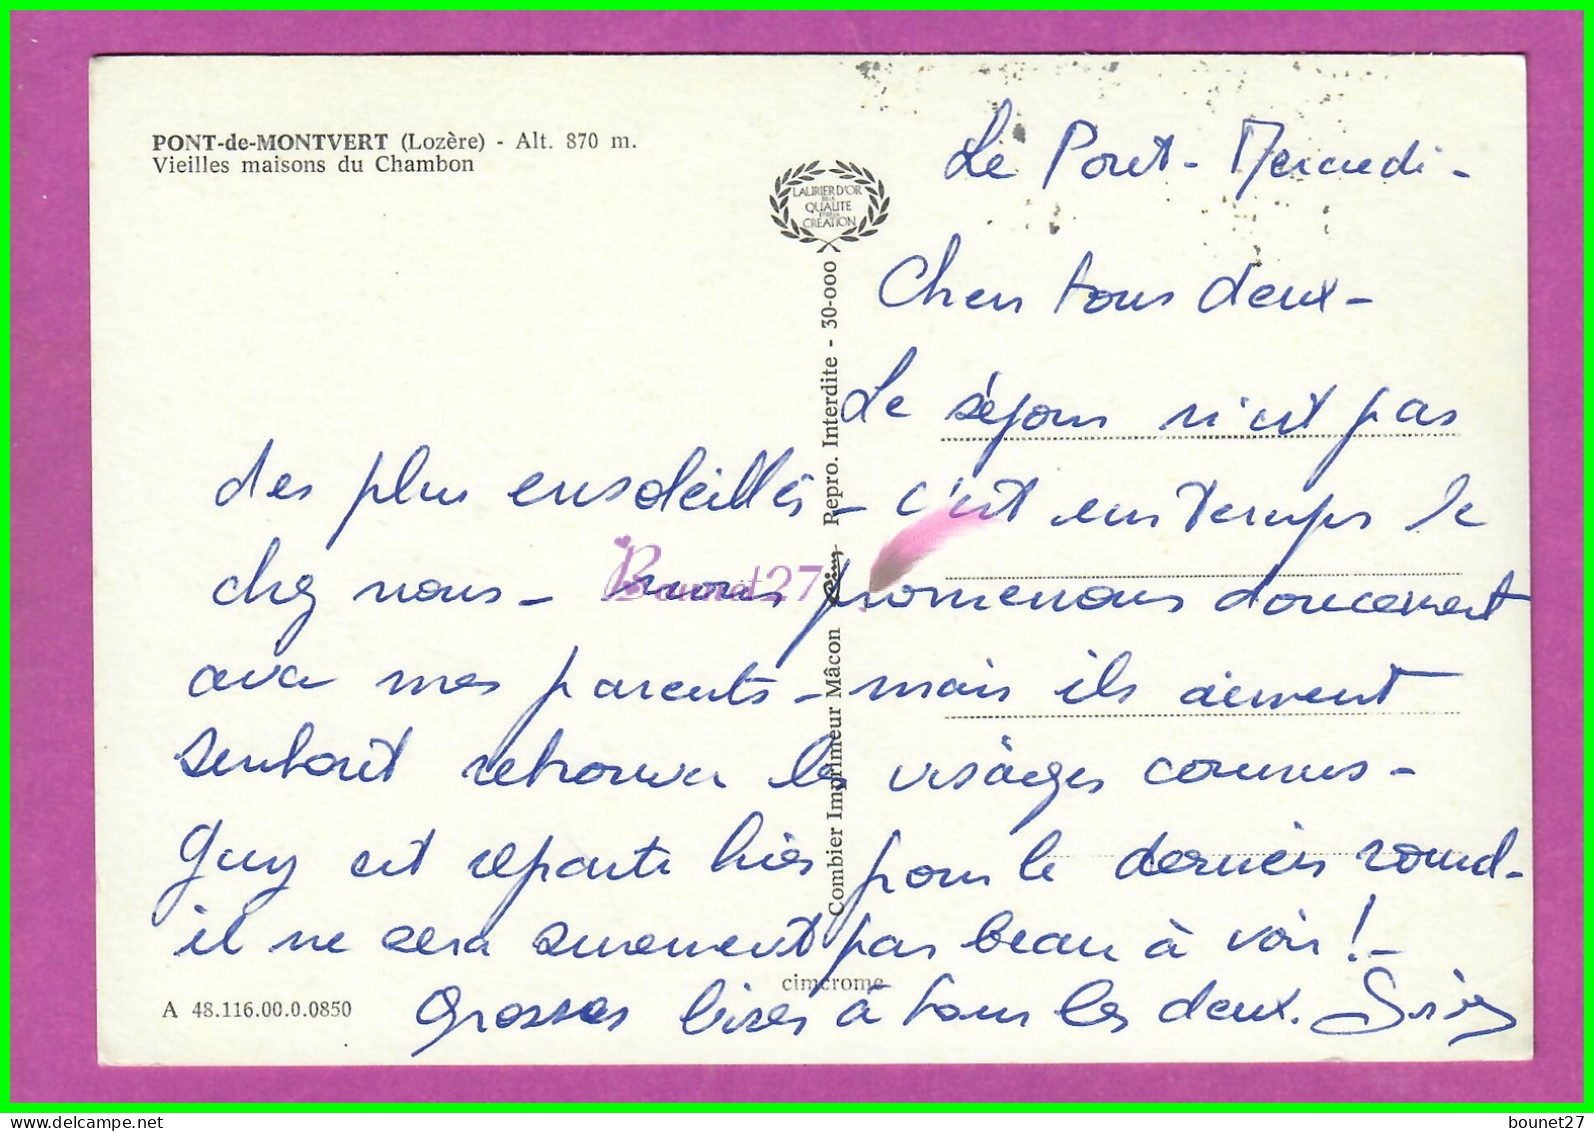 PONT-de-MONTVERT (Lozère) - Alt. 870 m.
Vieilles maisons du Chambon
LAURIER D'OR
DE LA
QUALITE
ET DE LA
CREATION
Combier Imprimeur Mâcon Cim Repro. Interdite - 30-000
Le Pont - Mercredi -
Chers tous deux -
Le séjour n'est pas
des plus ensoleillés - c'est un temps de
chez nous - nous promenons doucement
avec mes parents - mais ils aiment
surtout retrouver les visages connus -
Guy est reparti hier pour le dernier round -
il ne sera surement pas beau à voir ! -
Grosses bises à tous les deux.
cimcrome
A 48.116.00.0.0850
Bounet27
bounet27